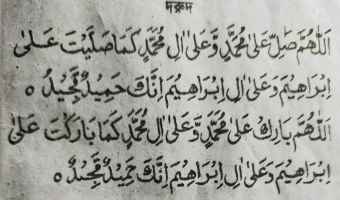 দরুদ
اَللّٰهُمَّ صَلِّ عَلىٰ مُحَمَّدٍ وَّعَلىٰ اٰلِ مُحَمَّدٍ كَمَا صَلَّيْتَ عَلىٰ
اِبْرَاهِيْمَ وَعَلىٰ اٰلِ اِبْرَاهِيْمَ اِنَّكَ حَمِيْدٌ مَّجِيْدٌ ه
اَللّٰهُمَّ بَارِكْ عَلىٰ مُحَمَّدٍ وَّعَلىٰ اٰلِ مُحَمَّدٍ كَمَا بَارَكْتَ عَلىٰ
اِبْرَاهِيْمَ وَعَلىٰ اٰلِ اِبْرَاهِيْمَ اِنَّكَ حَمِيْدٌ مَّجِيْدٌ ه